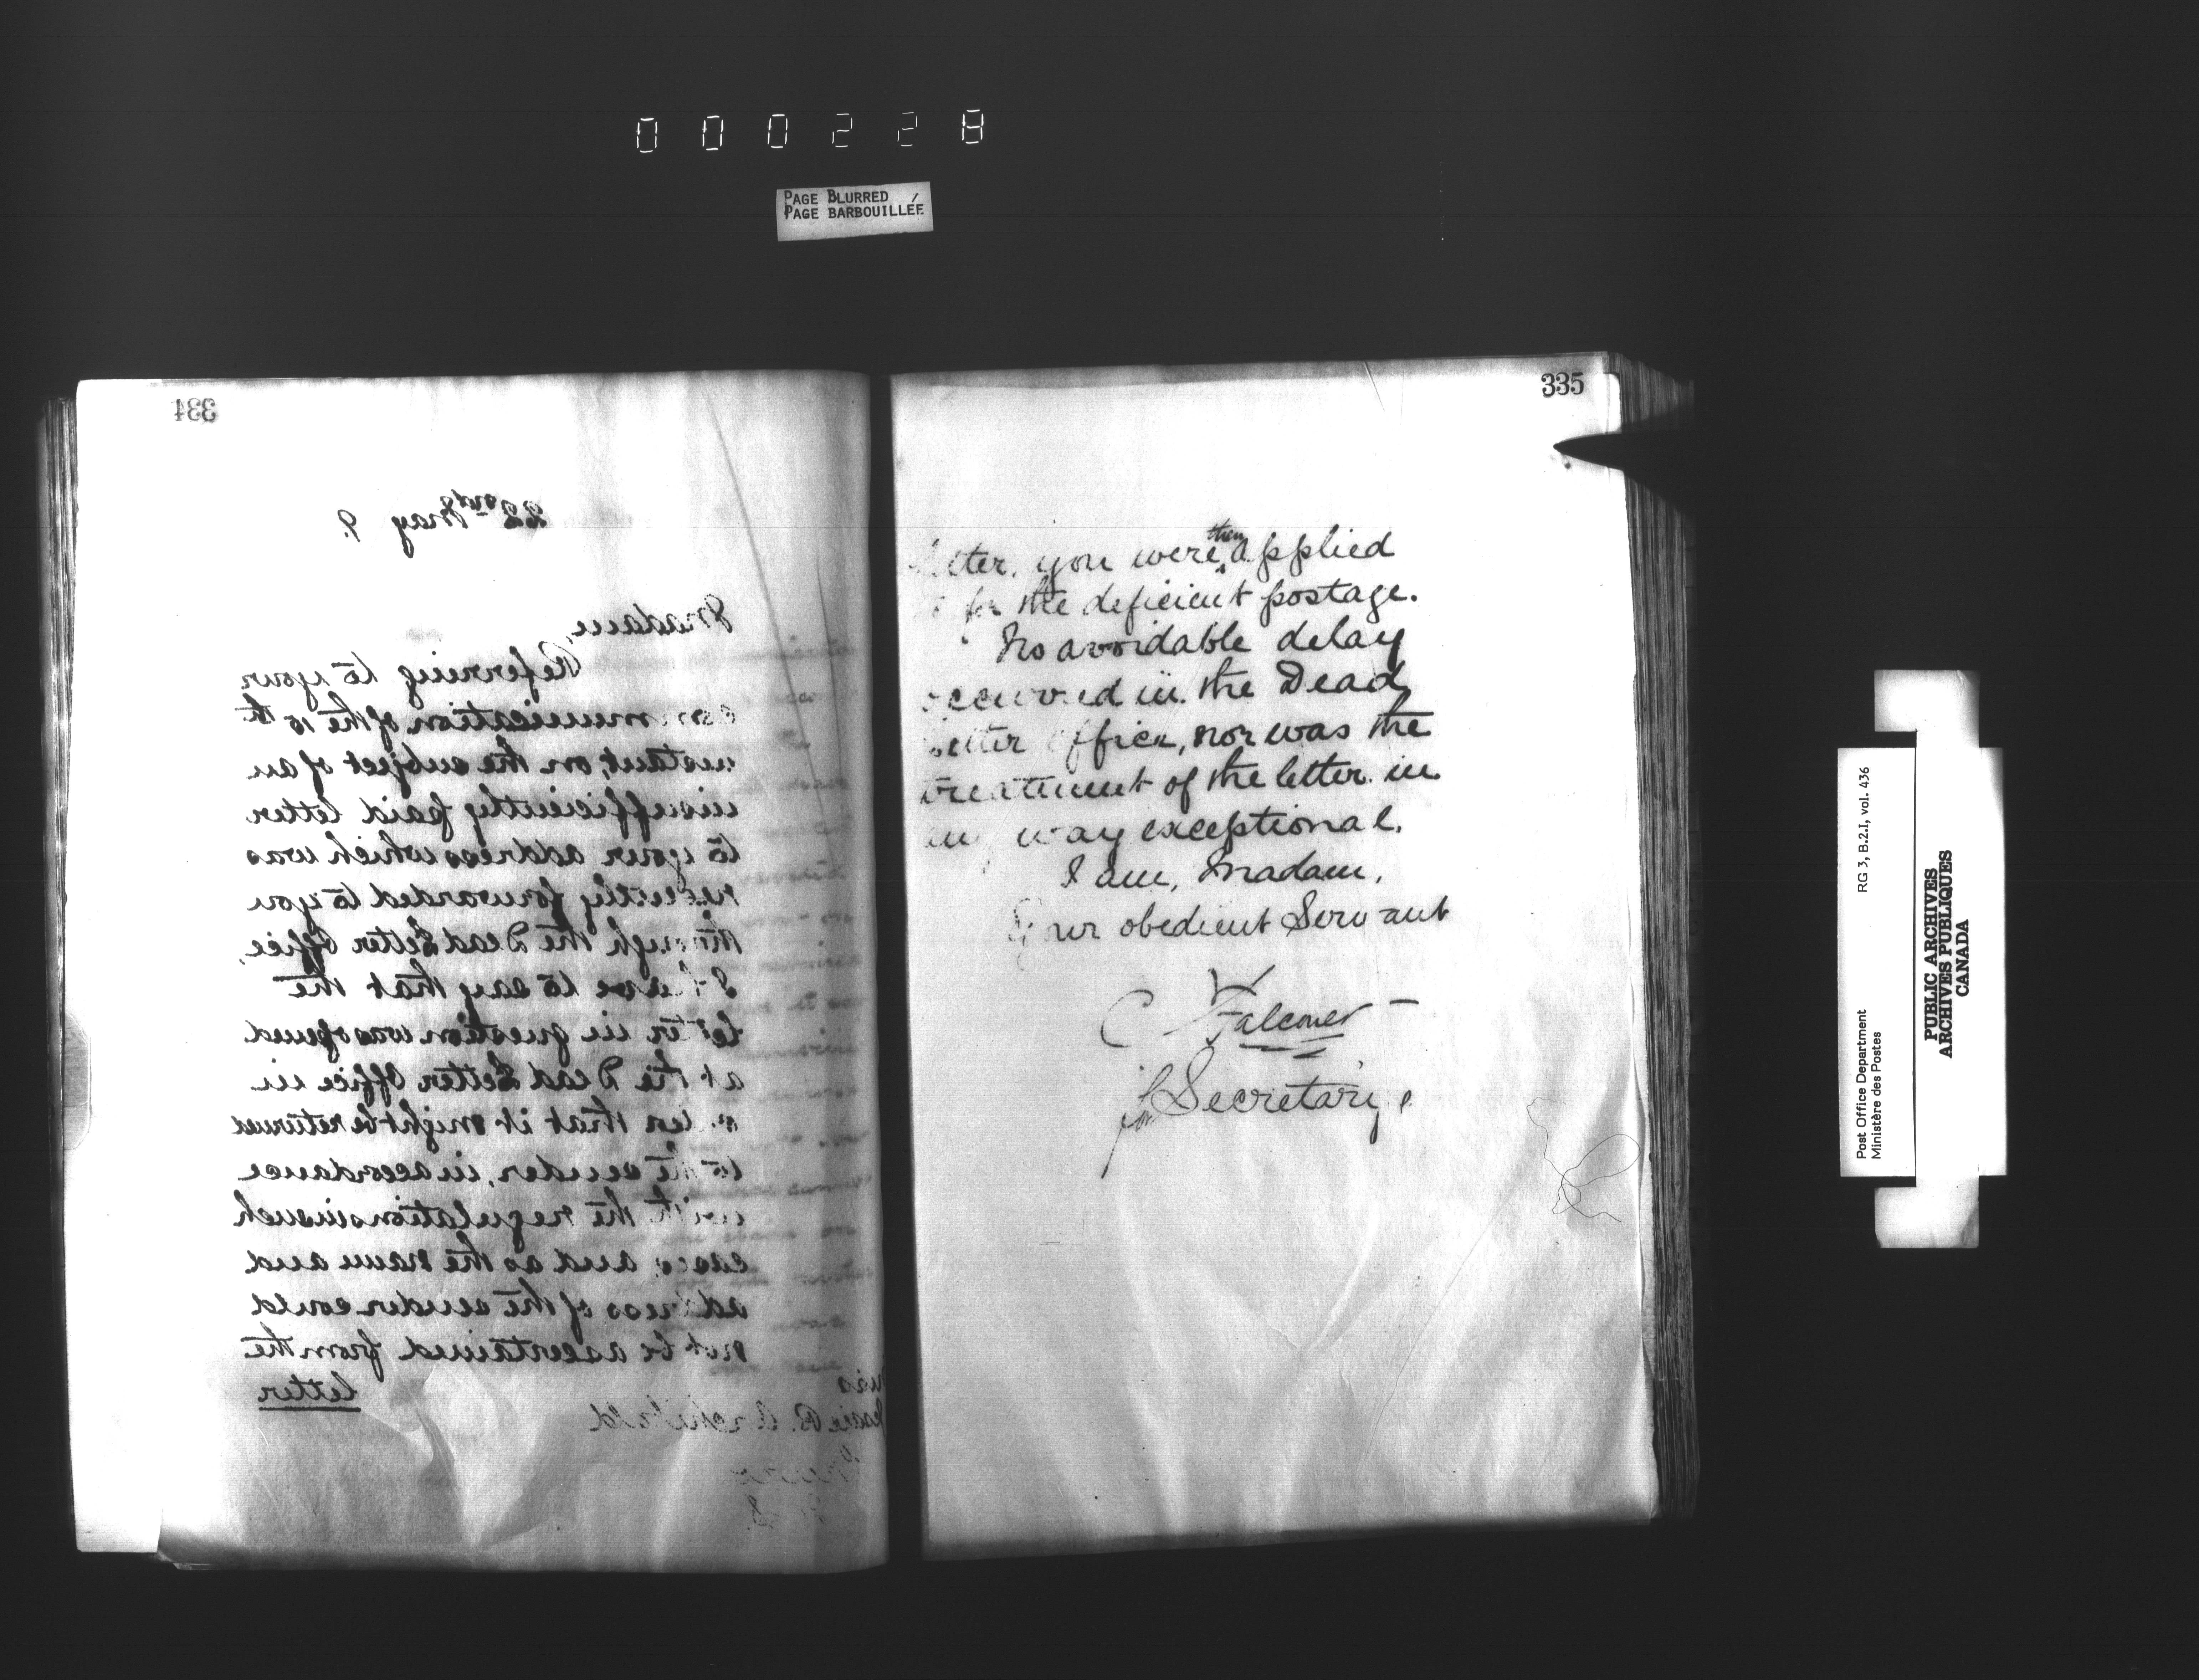 000228
PAGE BLURRED
PAGE BARBOUILLÉE
334
22nd May 9.
Madam,
Referring to your
communication of the 10th
instant, on the subject of an
insufficiently paid letter
to your address which was
recently forwarded to you
through the Dead Letter Office,
I have to say that the
letter in question was opened
at the Dead Letter Office in
order that it might be returned
to the sender, in accordance
with the regulations in such
cases, and as the name and
address of the sender could
not be ascertained from the
letter
Miss
B. Archibald
335
letter, you were then applied
to for the deficient postage.
No avoidable delay
occurred in the Dead
Letter Office, nor was the
treatment of the letter in
any way exceptional.
I am, Madam,
Your obedient Servant
C Falconer
for Secretary.
Post Office Department
Ministère des Postes
RG 3, B.2.I, vol. 436
PUBLIC ARCHIVES
ARCHIVES PUBLIQUES
CANADA